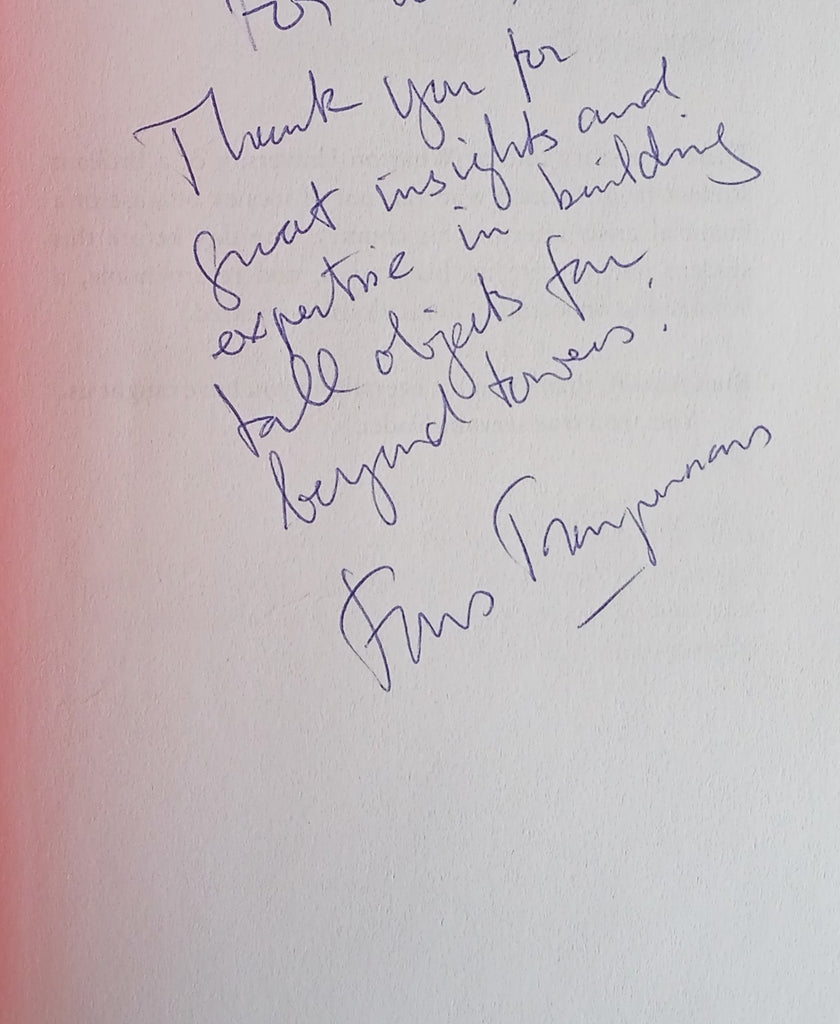 For
Thank you for
great insights and
expertise in building
tall objects far
beyond towers!
Fons Trompenaars